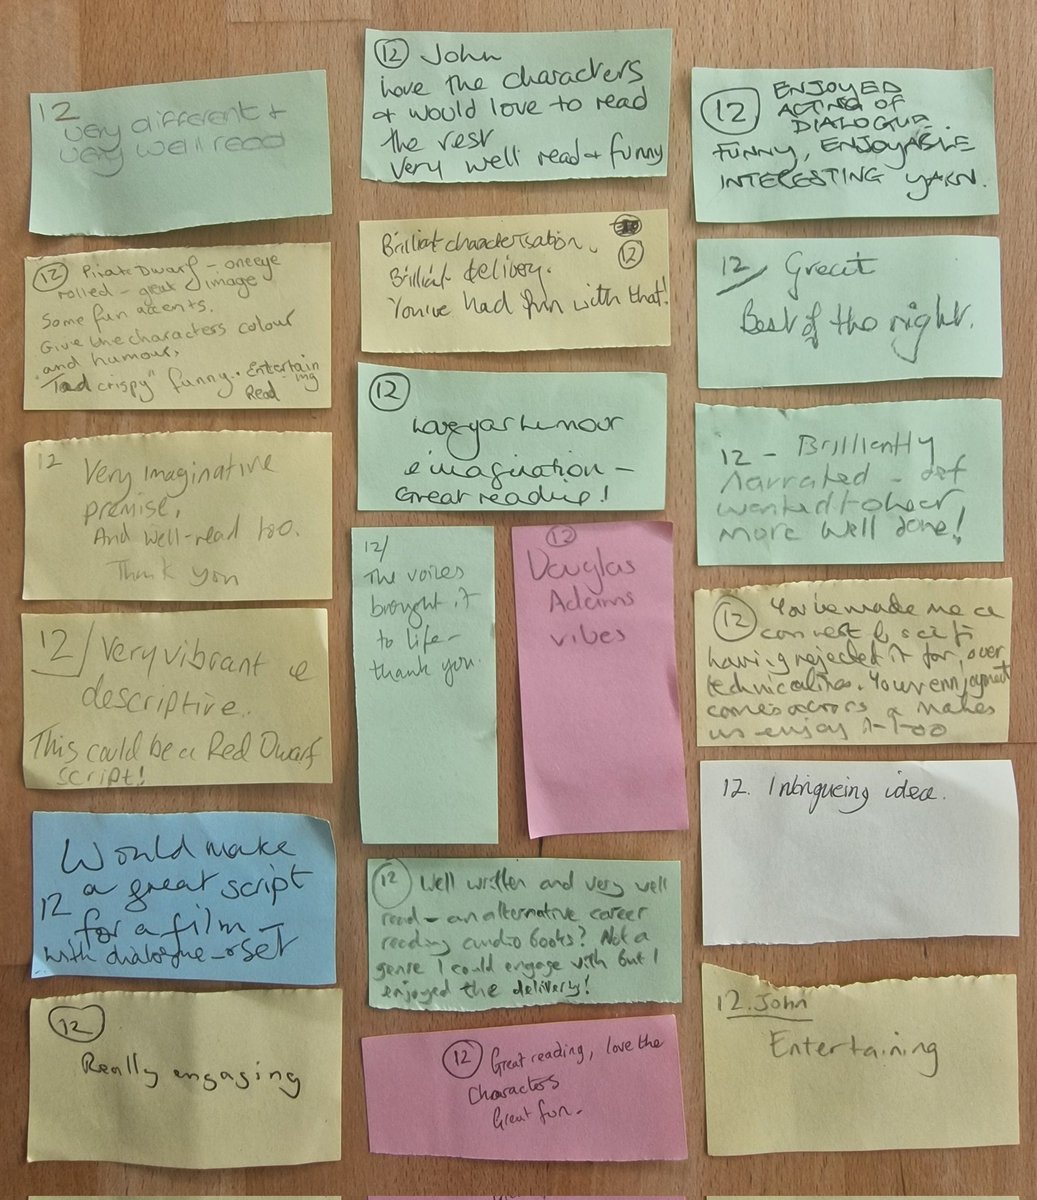 12
Very different +
very well read
(12) Pirate Dwarf - one eye
rolled - great image
Some fun accents.
Give the characters colour
and humour,
"Tad crispy" funny. Entertain
ing
Read
12 Very imaginative
premise,
And well-read too.
Thank you
12/ Very vibrant &
descriptive.
This could be a Red Dwarf
script!
Would make
a great script
12 for a film -
with dialogue - set
(12)
Really engaging
(12) John
Love the characters
+ would love to read
the rest
Very well read + funny
Brilliant characterisation.
(12)
Brilliant delivery.
You've had fun with that!
(12)
Love your humour
& imagination -
Great reading!
12/
The voices
brought it
to life -
thank you.
(12)
Douglas
Adams
vibes
(12) Well written and very well
read - an alternative career
reading audio books? Not a
genre I could engage with but I
enjoyed the delivery!
(12) Great reading, love the
Characters
Great fun -
(12) ENJOYED
ACTING OF
DIALOGUE.
FUNNY, ENJOYABLE
INTERESTING YARN.
12/ Great
Best of the night.
12 - Brilliantly
narrated - def
wanted to hear
more well done!
(12) You've made me a
convert to sci fi
having rejected it for over
technicalities. Your enjoyment
comes across & makes
us enjoy it too
12. Intrigueing idea.
12. John
Entertaining